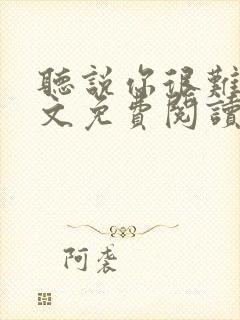 聽說你很難
文免費閱讀
阿袭